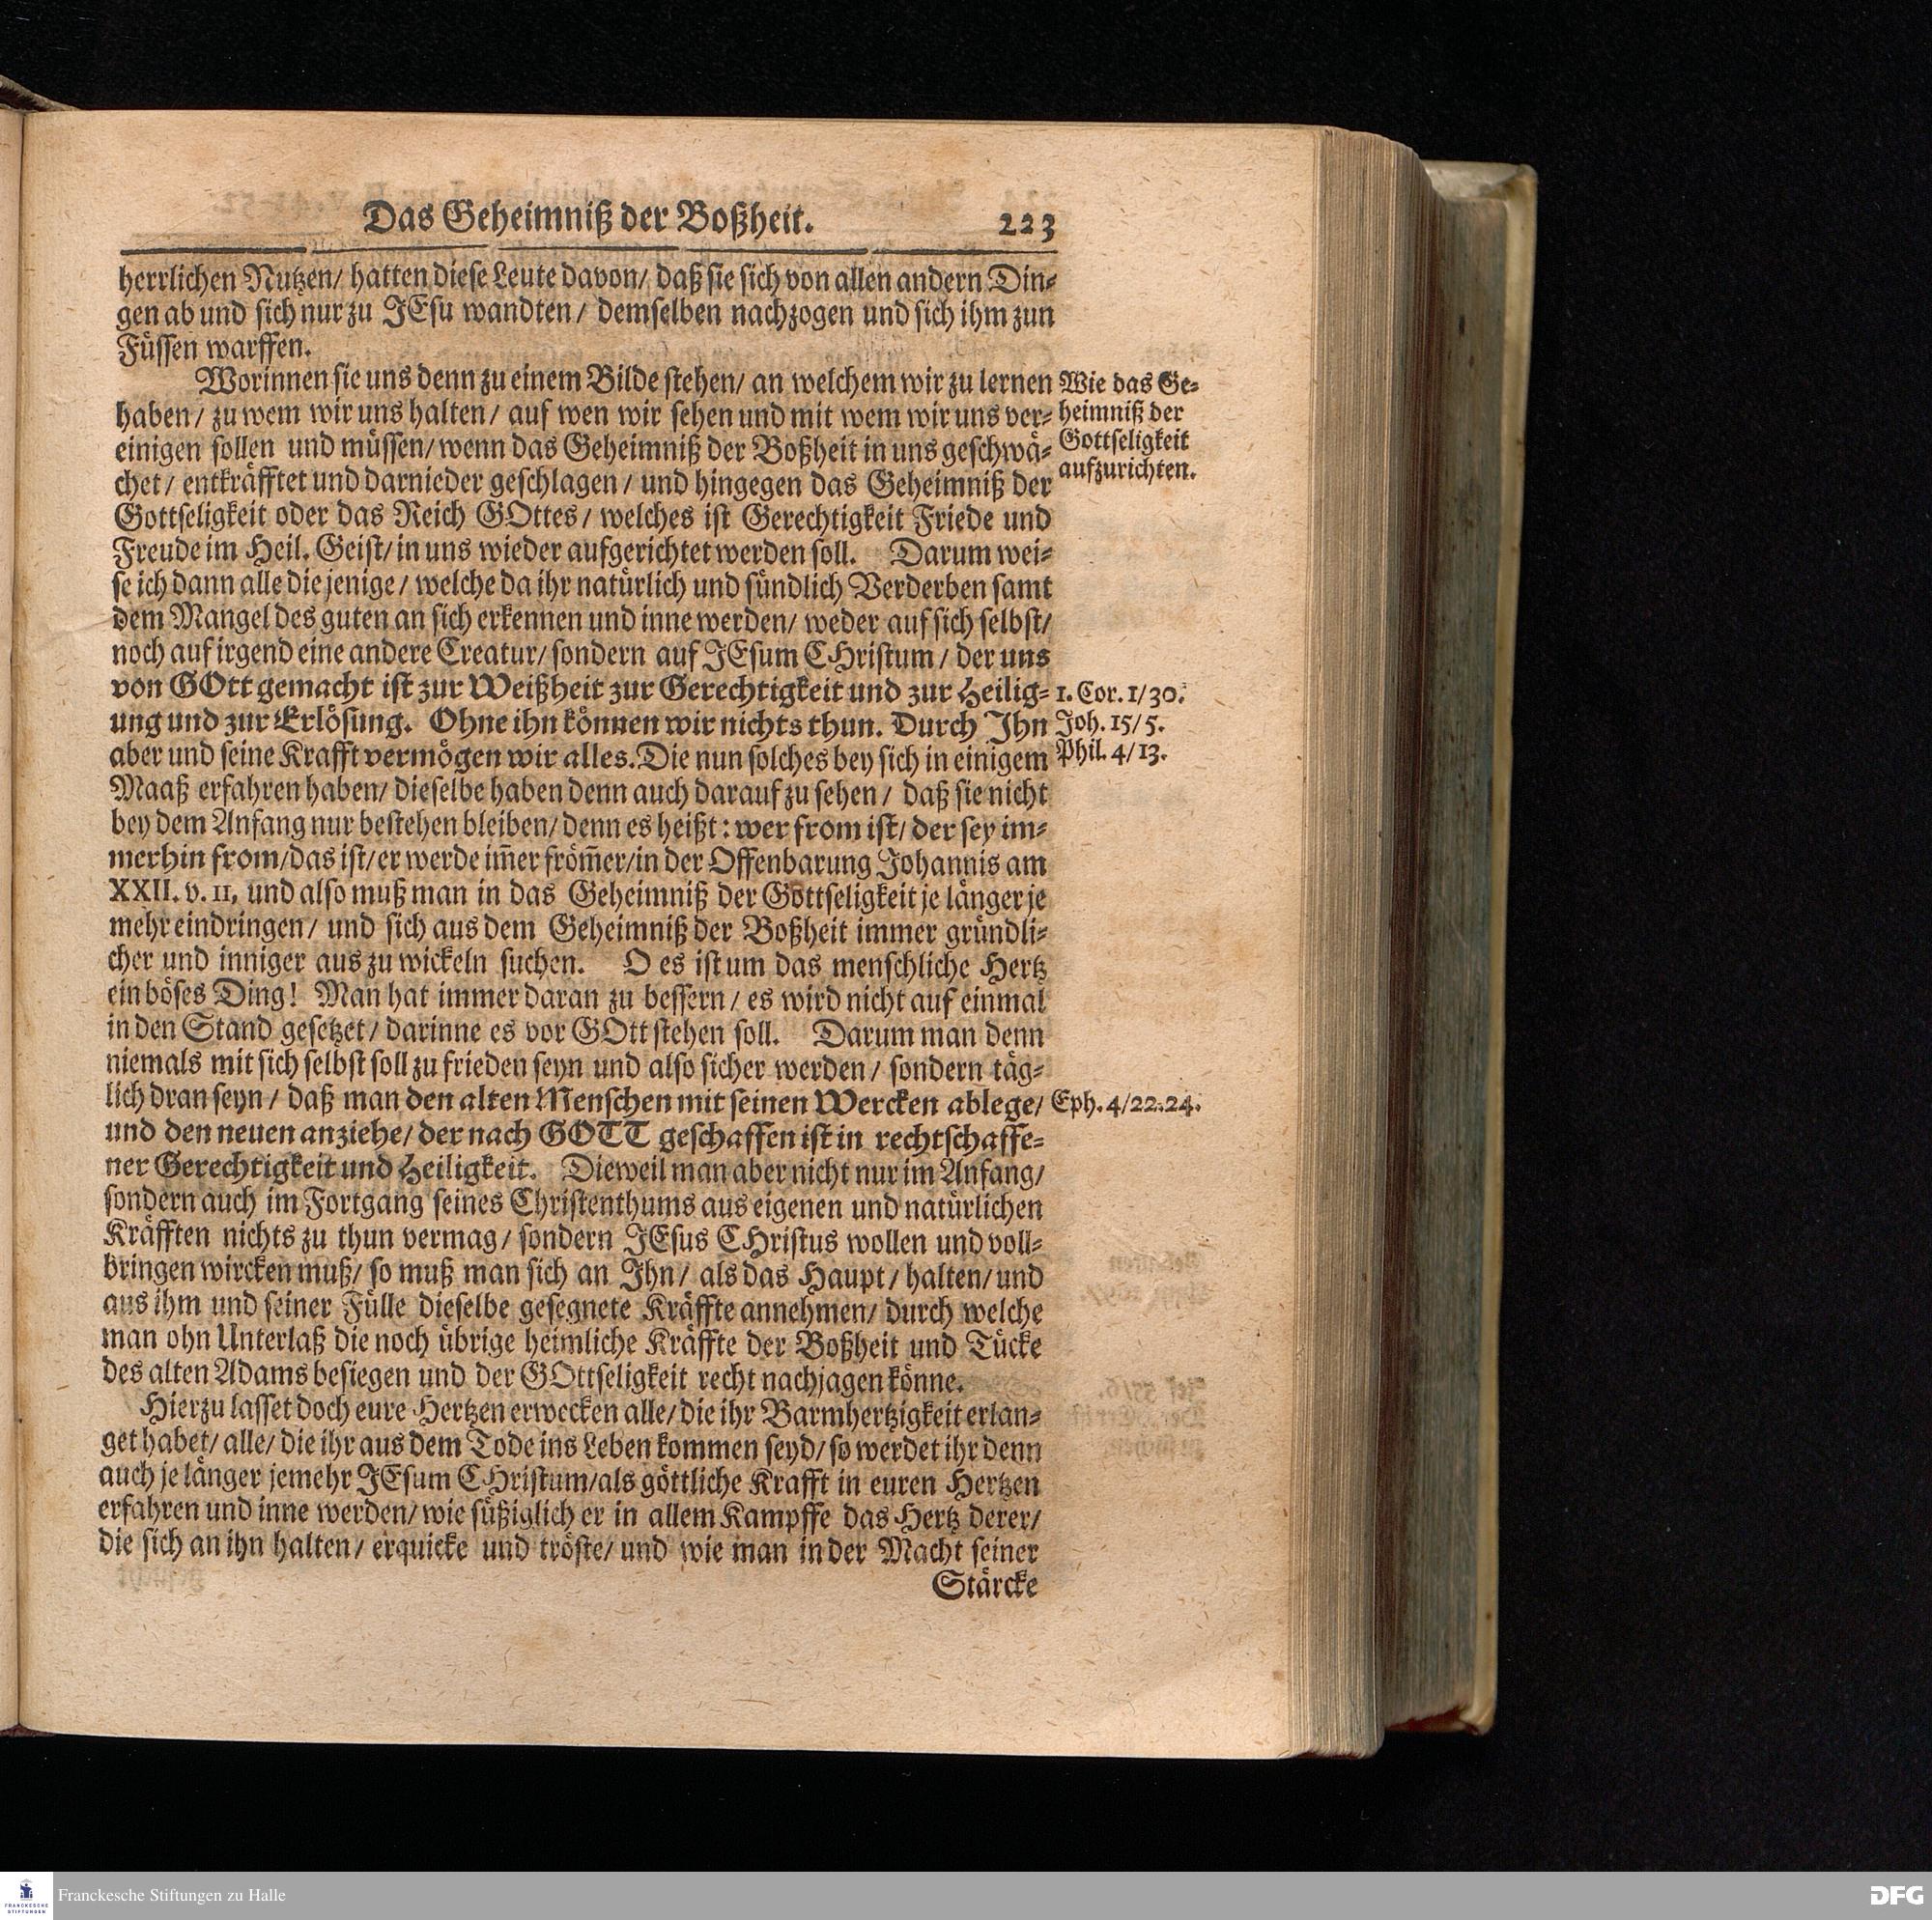 Das Geheimniß der Boßheit. 223
herrlichen Nutzen/ hatten diese Leute davon/ daß sie sich von allen andern Din-
gen ab und sich nur zu JEsu wandten/ demselben nachzogen und sich ihm zun
Füssen warffen.
Worinnen sie uns denn zu einem Bilde stehen/ an welchem wir zu lernen
haben/ zu wem wir uns halten/ auf wen wir sehen und mit wem wir uns ver-
einigen sollen und müssen/ wenn das Geheimniß der Boßheit in uns geschwä-
chet/ entkräfftet und darnieder geschlagen/ und hingegen das Geheimniß der
Gottseligkeit oder das Reich GOttes/ welches ist Gerechtigkeit Friede und
Freude im Heil. Geist/ in uns wieder aufgerichtet werden soll. Darum wei-
se ich dann alle die jenige/ welche da ihr natürlich und sündlich Verderben samt
dem Mangel des guten an sich erkennen und inne werden/ weder auf sich selbst/
noch auf irgend eine andere Creatur/ sondern auf JEsum CHristum/ der uns
von GOtt gemacht ist zur Weißheit zur Gerechtigkeit und zur Heilig-
ung und zur Erlösung. Ohne ihn können wir nichts thun. Durch Jhn
aber und seine Krafft vermögen wir alles. Die nun solches bey sich in einigem
Maaß erfahren haben/ dieselbe haben denn auch darauf zu sehen/ daß sie nicht
bey dem Anfang nur bestehen bleiben/ denn es heißt: wer from ist/ der sey im-
merhin from/das ist/er werde im̃er fröm̃er/in der Offenbarung Johannis am
XXII. v. 11, und also muß man in das Geheimniß der Gottseligkeit je länger je
mehr eindringen/ und sich aus dem Geheimniß der Boßheit immer gründli-
cher und inniger aus zu wickeln suchen. O es ist um das menschliche Hertz
ein böses Ding! Man hat immer daran zu bessern/ es wird nicht auf einmal
in den Stand gesetzet/ darinne es vor GOtt stehen soll. Darum man denn
niemals mit sich selbst soll zu frieden seyn und also sicher werden/ sondern täg-
lich dran seyn/ daß man den alten Menschen mit seinen Wercken ablege/
und den neuen anziehe/ der nach GOTT geschaffen ist in rechtschaffe-
ner Gerechtigkeit und Heiligkeit. Dieweil man aber nicht nur im Anfang/
sondern auch im Fortgang seines Christenthums aus eigenen und natürlichen
Kräfften nichts zu thun vermag/ sondern JEsus CHristus wollen und voll-
bringen wircken muß/ so muß man sich an Jhn/ als das Haupt/ halten/ und
aus ihm und seiner Fülle dieselbe gesegnete Kräffte annehmen/ durch welche
man ohn Unterlaß die noch übrige heimliche Kräffte der Boßheit und Tücke
des alten Adams besiegen und der GOttseligkeit recht nachjagen könne.
Hierzu lasset doch eure Hertzen erwecken alle/ die ihr Barmhertzigkeit erlan-
get habet/ alle/ die ihr aus dem Tode ins Leben kommen seyd/ so werdet ihr denn
auch je länger jemehr JEsum CHristum/als göttliche Krafft in euren Hertzen
erfahren und inne werden/ wie süßiglich er in allem Kampffe das Hertz derer/
die sich an ihn halten/ erquicke und tröste/ und wie man in der Macht seiner
Stärcke
Wie das Ge-
heimniß der
Gottseligkeit
aufzurichten.
1. Cor. 1/30.
Joh. 15/5.
Phil. 4/13.
Eph. 4/22.24.
FRANCKESCHE
STIFTUNGEN
Franckesche Stiftungen zu Halle
DFG